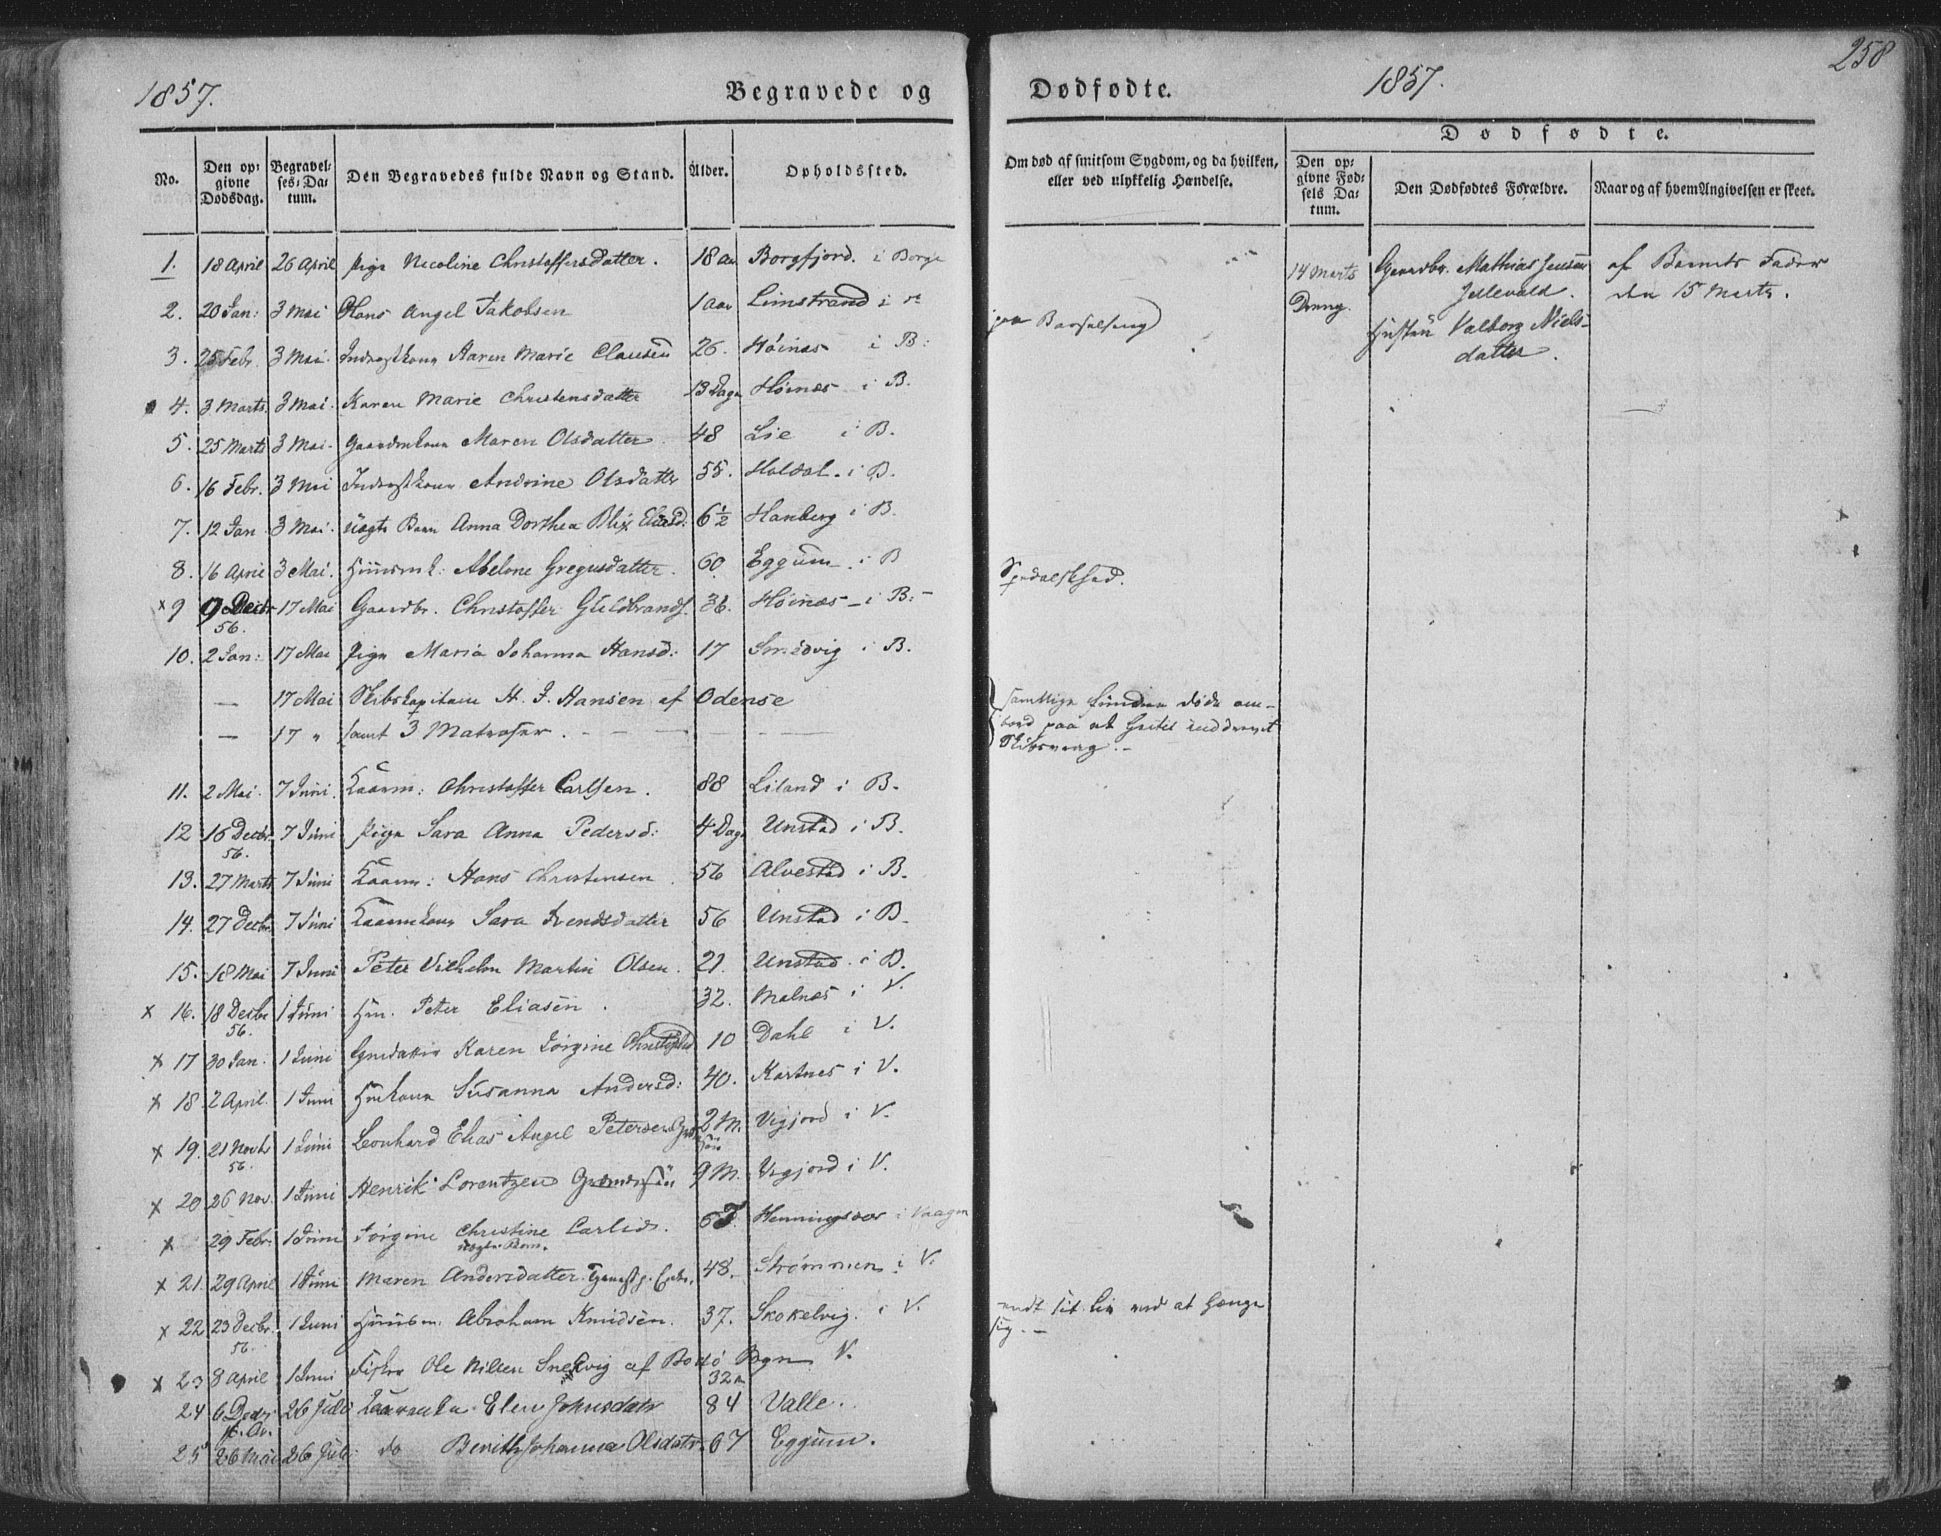 1857.
Begravede og
Dødfødte.
1857.
258
No.
Den op-
givne
Dødsdag.
Begravel-
ses-Da-
tum.
Den Begravedes fulde Navn og Stand.
Alder.
Opholdssted.
Om død af smitsom Sygdom, og da hvilken,
eller ved ulykkelig Hændelse.
Dødfødte.
Den op-
givne Fød-
sels Da-
tum.
Den Dødfødtes Forældre.
Naar og af hvem Angivelsen er skeet.
1. 18 April 26 April Pige Nicoline Christoffersdatter. 18 aar Borgfjord i Borge
2. 20 Jan: 3 Mai Hans Angel Jakobsen 1 aar Limstrand i
3. 25 Febr. 3 Mai. Karen Marie Clausen 26. Høinæs i B:
paa Barselseng
4. 3 Marts 3 Mai. Karen Marie Christensdatter 13 Dage Høinæs i B.
5. 25 Marts 3 Mai. Maren Olsdatter 48 Lie i B.
6. 16 Febr. 3 Mai Andrine Olsdatter 55. Holdal i B.
7. 12 Jan 3 Mai. uægte Barn Anna Dorthea Blix 6½ Hanberg i B.
8. 16 April 3 Mai. Abelone Gregusdatter. 60 Eggum i B
Spedalskhed.
x 9 9 Decbr 17 Mai Gaardbr. Christoffer Guldbrands. 36. Høinæs i B:
56.
10. 2 Jan: 17 Mai Pige Maria Johanna Hansd: 17 i B.
— 17 Mai Skibskapitain H. J. Hansen af Odense
— 17 " samt 3 Matroser.
samtlige funden døde om-
bord paa et hertil inddrevet
Skibsvrag.
11. 2 Mai. 7 Juni. Kaarm: Christoffer Carlsen. 88 Liland i B.
12 16 Decbr. 7 Juni Pige Sara Anna Pedersd: 4 Dage Unstad i B.
56.
13. 27 Marts 7 Juni Kaarm: Hans Christensen 56 Alvestad i B.
14. 27 Decbr. 7 Juni Kaarmkone Sara 56 Unstad i B.
15. 18 Mai 7 Juni Peter Vilhelm Martin Olsen. 21. Unstad i B.
x 16. 18 Decbr 1 Juni Peter Eliasen. 32. Malnæs i V.
56.
x 17 30 Jan. 1 Juni Karen Jørgine 10 Dahl i V.
x 18. 2 April. 1 Juni Susanna Andersd: 40. Kartnes i V.
x 19. 21 Novbr 1 Juni Leonhard Elias Angel Petersen 2 M. Vigjord i V.
56.
x 20 26 Nov. 1 Juni Henrik Lorentzen 9 M. Vigjord i V.
x 29 Febr. 1 Juni Jørgine Christine Carlsd. Henningsvær i Vaagen
uægte Barn.
x 21. 29 April 1 Juni Maren Andersdatter 48. Strømmen i V.
x 22 23 Decbr. 1 Juni Huusm. Abraham Knudsen. 37. Skokelvig. i V.
56.
endt sit liv ved at hænge
sig.
x 23 8 April 1 Juni Fisker Ole Nilsen af Bodø V.
32
24 6 Decbr 26 Juli Elen Johnsdatr 84 Valle.
25 26 Mai 26 Juli do Johanna Olsdatr. 67 Eggum.
14 Marts
Dreng.
Gaardbr. Mathias Jensen
Jellevold.
Hustru Valborg Niels-
datter.
af Barnets Fader
den 15 Marts.